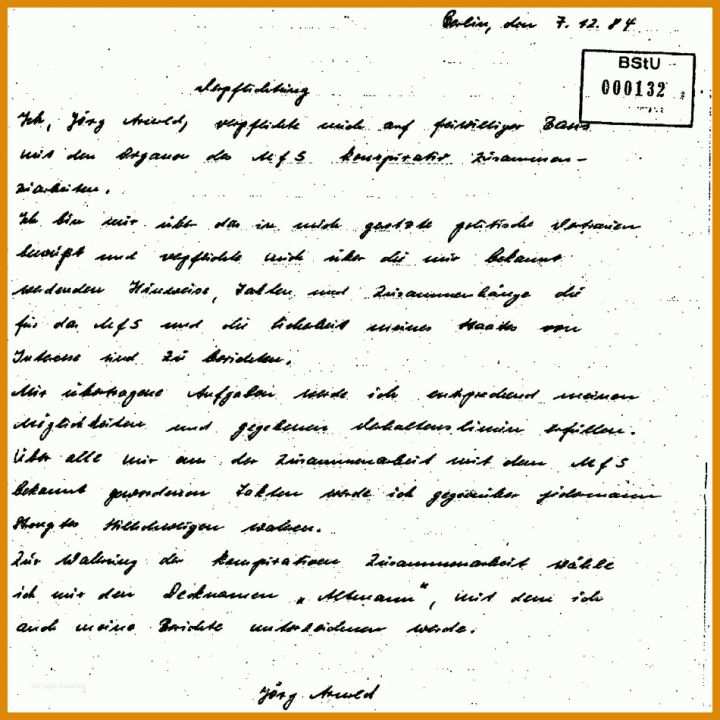 Berlin, den 7.12.84
BStU
000132
Verpflichtung
Ich, Jörg Arnold, verpflichte mich auf freiwilliger Basis
mit den Organen des MfS konspirativ zusammen-
zuarbeiten.
Ich bin mir über das in mich gesetzte politische Vertrauen
bewußt und verpflichte mich über die mir bekannt
werdenden Hinweise, Fakten und Zusammenhänge die
für das MfS und die Sicherheit meines Staates von
Interesse sind zu berichten.
Mir übertragene Aufgaben werde ich entsprechend meinen
Möglichkeiten und gegebenen Verhaltenslinien erfüllen.
Über alle mir aus der Zusammenarbeit mit dem MfS
bekannt gewordenen Fakten werde ich gegenüber jedermann
strengstes Stillschweigen wahren.
Zur Wahrung der konspirativen Zusammenarbeit wähle
ich mir den Decknamen „Altmann“, mit dem ich
auch meine Berichte unterzeichnen werde.
Jörg Arnold